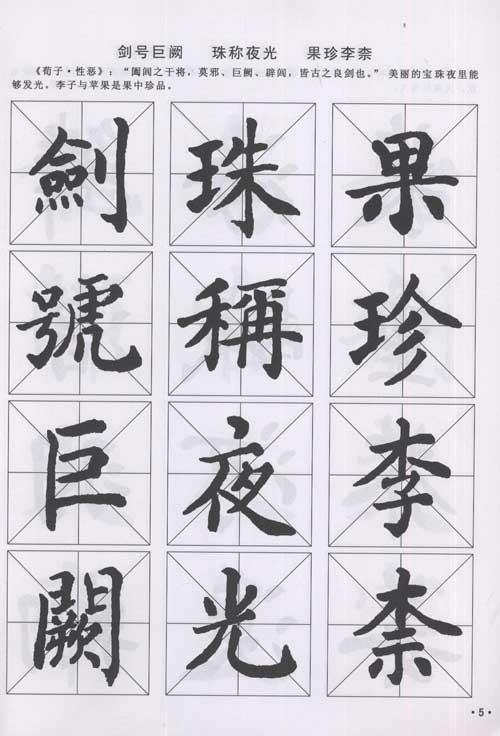 剑号巨阙 珠称夜光 果珍李柰
《荀子·性恶》：“阖闾之干将，莫邪、巨阙、辟闾，皆古之良剑也。”美丽的宝珠夜里能
够发光。李子与苹果是果中珍品。
劍號巨闕
珠稱夜光
果珍李柰
·5·